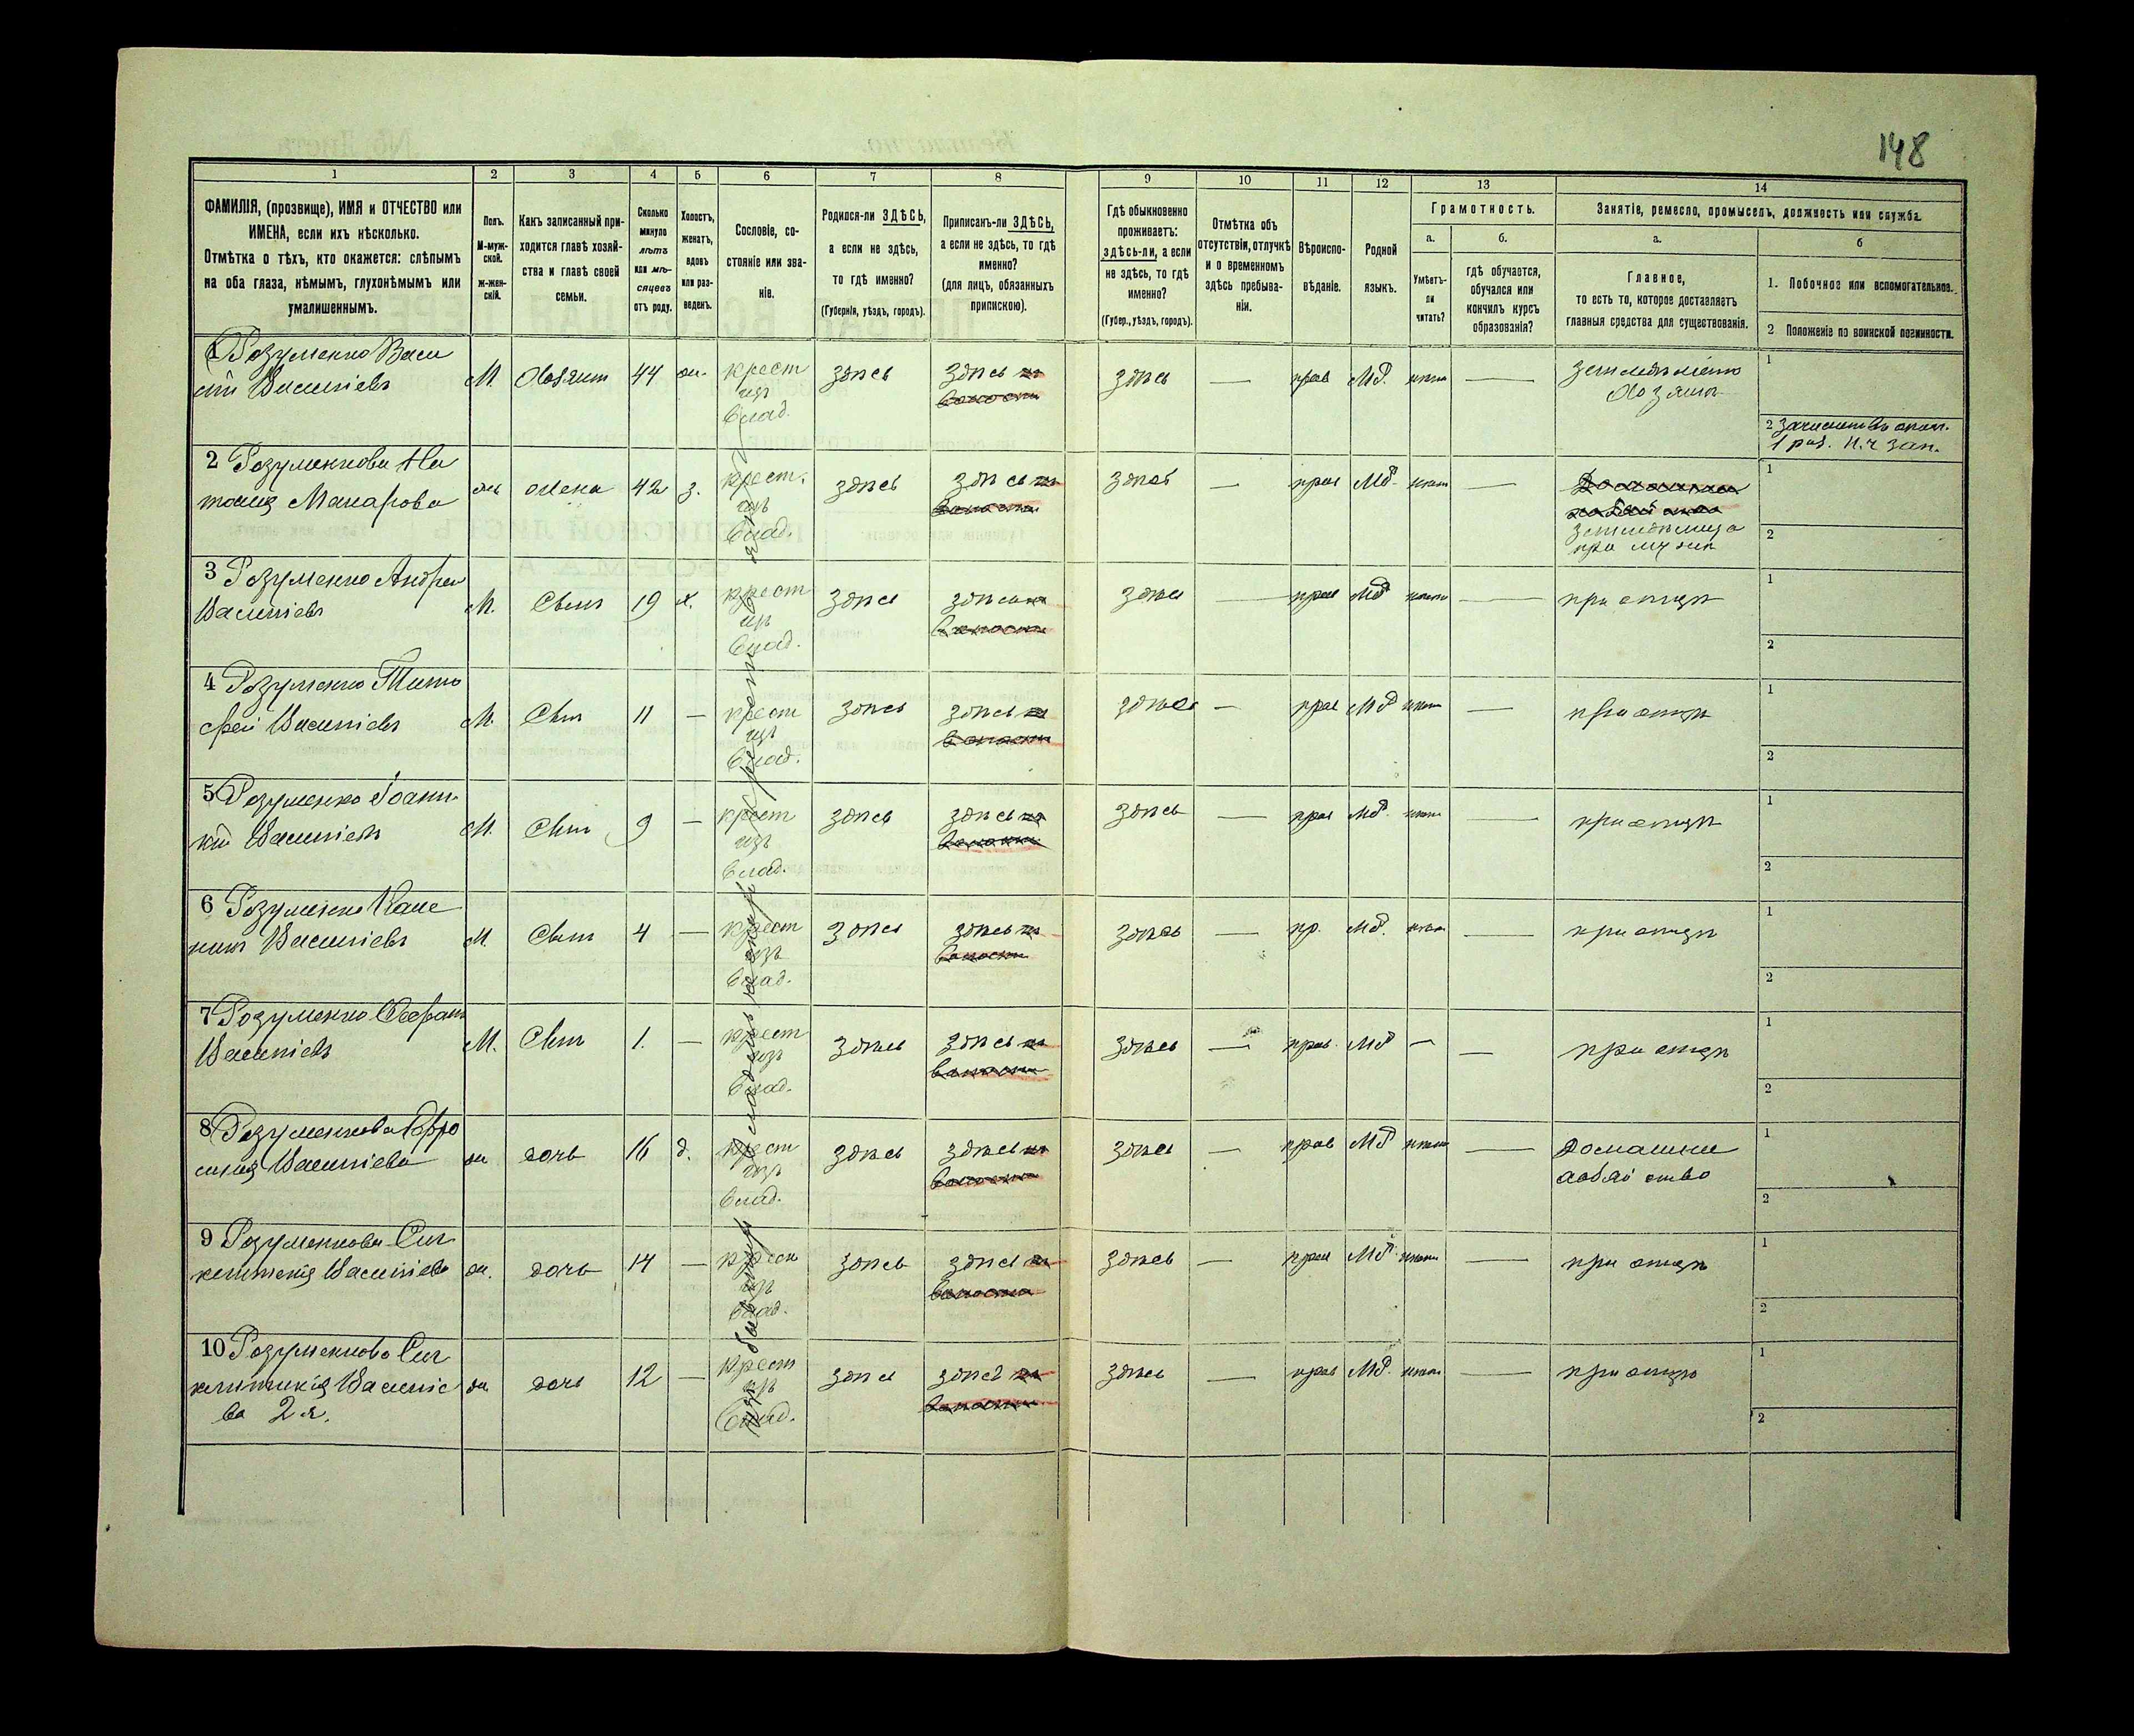 148
1 2 3 4 5 6 7 8 9 10 11 12 13 14
ФАМИЛІЯ, (прозвище), ИМЯ и ОТЧЕСТВО или
ИМЕНА, если ихъ нѣсколько.
Отмѣтка о тѣхъ, кто окажется: слѣпымъ
на оба глаза, нѣмымъ, глухонѣмымъ или
умалишеннымъ.
Полъ.
М-муж-
ской.
ж-жен-
скій.
Какъ записанный при-
ходится главѣ хозяй-
ства и главѣ своей
семьи.
Сколько
минуло
лѣтъ
или мѣ-
сяцевъ
отъ роду.
Холостъ,
женатъ,
вдовъ
или раз-
веденъ.
Сословіе, со-
стояніе или зва-
ніе.
Родился-ли ЗДѢСЬ,
а если не здѣсь,
то гдѣ именно?
(Губернія, уѣздъ, городъ).
Приписанъ-ли ЗДѢСЬ,
а если не здѣсь, то гдѣ
именно?
(для лицъ, обязанныхъ
припискою).
Гдѣ обыкновенно
проживаетъ:
здѣсь-ли, а если
не здѣсь, то гдѣ
именно?
(Губер., уѣздъ, городъ).
Отмѣтка объ
отсутствіи, отлучкѣ
и о временномъ
здѣсь пребыва-
ніи.
Вѣроиспо-
вѣданіе.
Родной
языкъ.
Грамотность.
а.
Умѣетъ-
ли
читать?
б.
гдѣ обучается,
обучался или
кончилъ курсъ
образованія?
Занятіе, ремесло, промыселъ, должность или служба.
а.
Главное,
то есть то, которое доставляетъ
главныя средства для существованія.
б
1. Побочное или вспомогательное.
2 Положеніе по воинской повинности.
1 Розуменко Васи
лій Василіевъ М. Хозяин 44 ж. крест изъ влад. здѣсь здѣсь здѣсь — прав Мд. нѣтъ — земледѣліе
хозяинъ
1
2
1 раз.
2 Розуменкова На
талія Макарова ж жена 42 з. крест. изъ влад. здѣсь здѣсь здѣсь — прав Мд. нѣтъ —
при мужѣ
1
2
3 Розуменко Андрей
Василіевъ М. Сынъ 19 х. крест изъ влад. здѣсь здѣсь здѣсь — прав Мд нѣтъ — при отцѣ
1
2
4 Розуменко Тимо
фей Василіевъ М. Сынъ 11 — крест изъ влад. здѣсь здѣсь здѣсь — прав Мд нѣтъ — при отцѣ
1
2
5 Розуменко Іоанни
кій Василіевъ М. Сынъ 9 — крест изъ влад. здѣсь здѣсь здѣсь — прав Мд. нѣтъ — при отцѣ
1
2
6 Розуменко
Василіевъ М. Сынъ 4 — крест изъ влад. здѣсь здѣсь здѣсь — пр. Мд. нѣтъ — при отцѣ
1
2
7 Розуменко Стефанъ
Василіевъ М. Сынъ 1. — крест изъ влад. здѣсь здѣсь здѣсь — прав. Мд — — при отцѣ
1
2
8 Розуменкова Ефро
синія Василіева ж дочь 16 д. крест изъ влад. здѣсь здѣсь здѣсь — прав Мд нѣтъ — Домашнее
1
2
9 Розуменкова Син
клитикія Василіева ж. дочь 14 — крест изъ влад. здѣсь здѣсь здѣсь — прав Мд. нѣтъ — при отцѣ
1
2
10 Розуменкова Син
клитикія Василіе
ва 2 я. ж дочь 12 — крест изъ влад. здѣсь здѣсь здѣсь — прав Мд. нѣтъ — при отцѣ
1
2